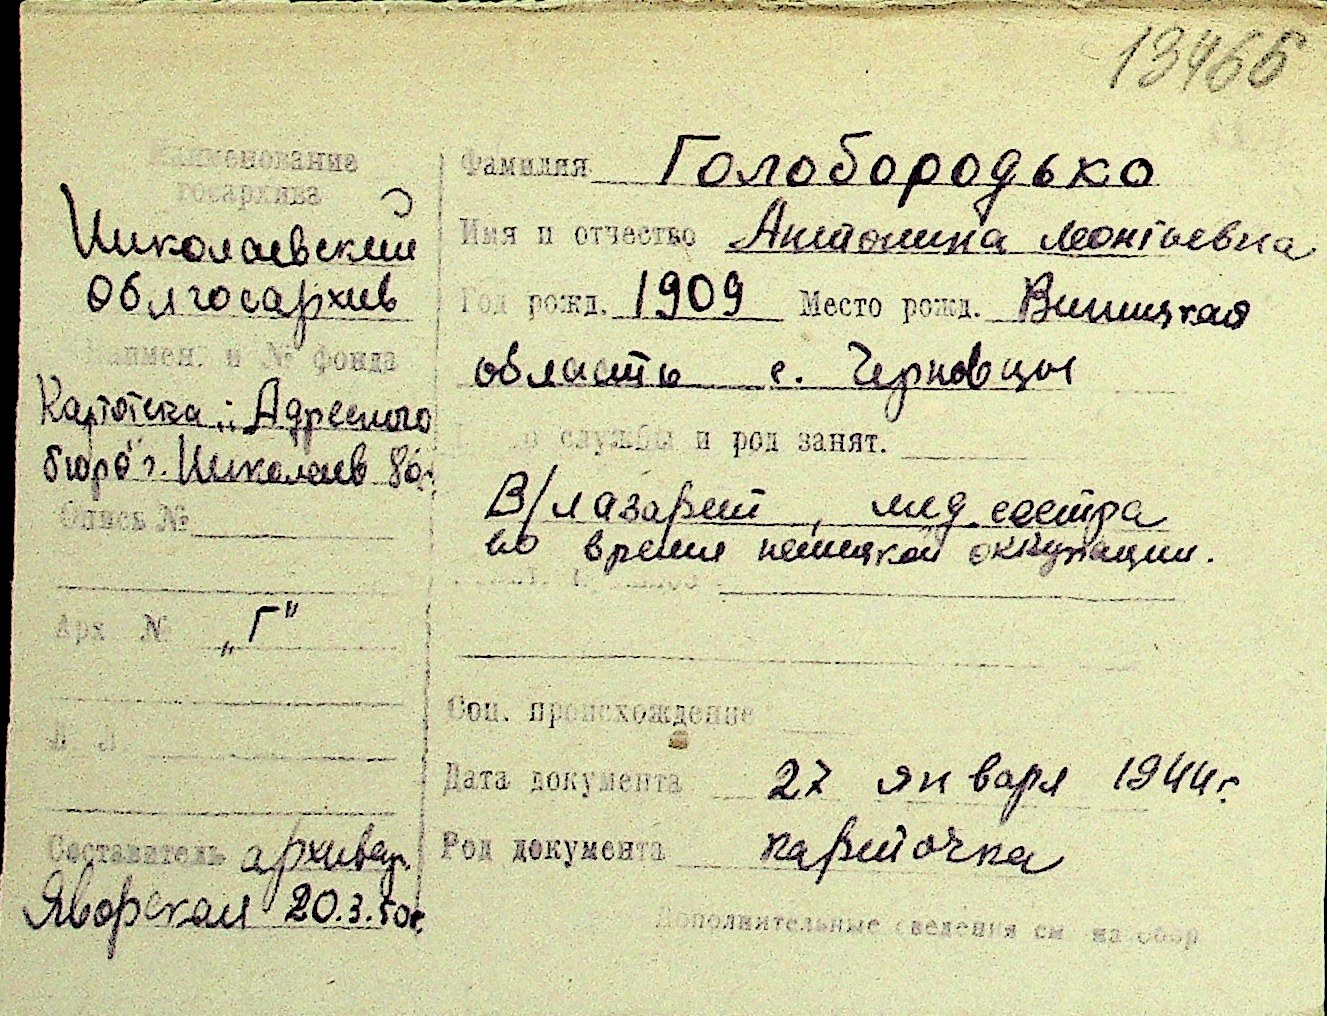 13466
Наименование
госархива
Николаевский
Облгосархив
Наимен. и № фонда
Картотека „Адресного
бюро" г. Николаев
Опись №
Арх № „Г"
Составитель архивар.
Яворская 20.3.50г.
Фамилия Голобородько
Имя и отчество Антонина Леонтьевна
Год рожд. 1909 Место рожд. Виницкая
область с. Черновцы
службы и род занят.
В/лазарет, мед. сестра
во время немецкой оккупации.
Соц. происхождение
Дата документа 27 января 1944г.
Род документа карточка
Дополнительные сведения см на обор